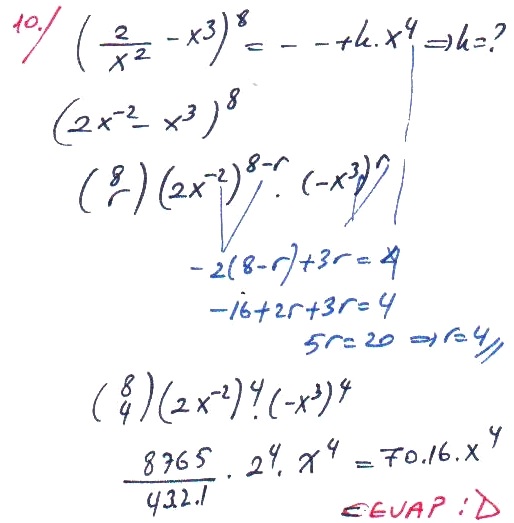 10./ (2/x² - x³)⁸ = - - + k.x⁴ ⇒ k=?
(2x⁻² - x³)⁸
(8 r)(2x⁻²)⁸⁻ʳ . (-x³)ʳ
-2(8-r)+3r=4
-16+2r+3r=4
5r=20 ⇒ r=4//
(8 4)(2x⁻²)⁴.(-x³)⁴
8765/432.1 . 2⁴. x⁴ = 70.16.x⁴
CEVAP : D